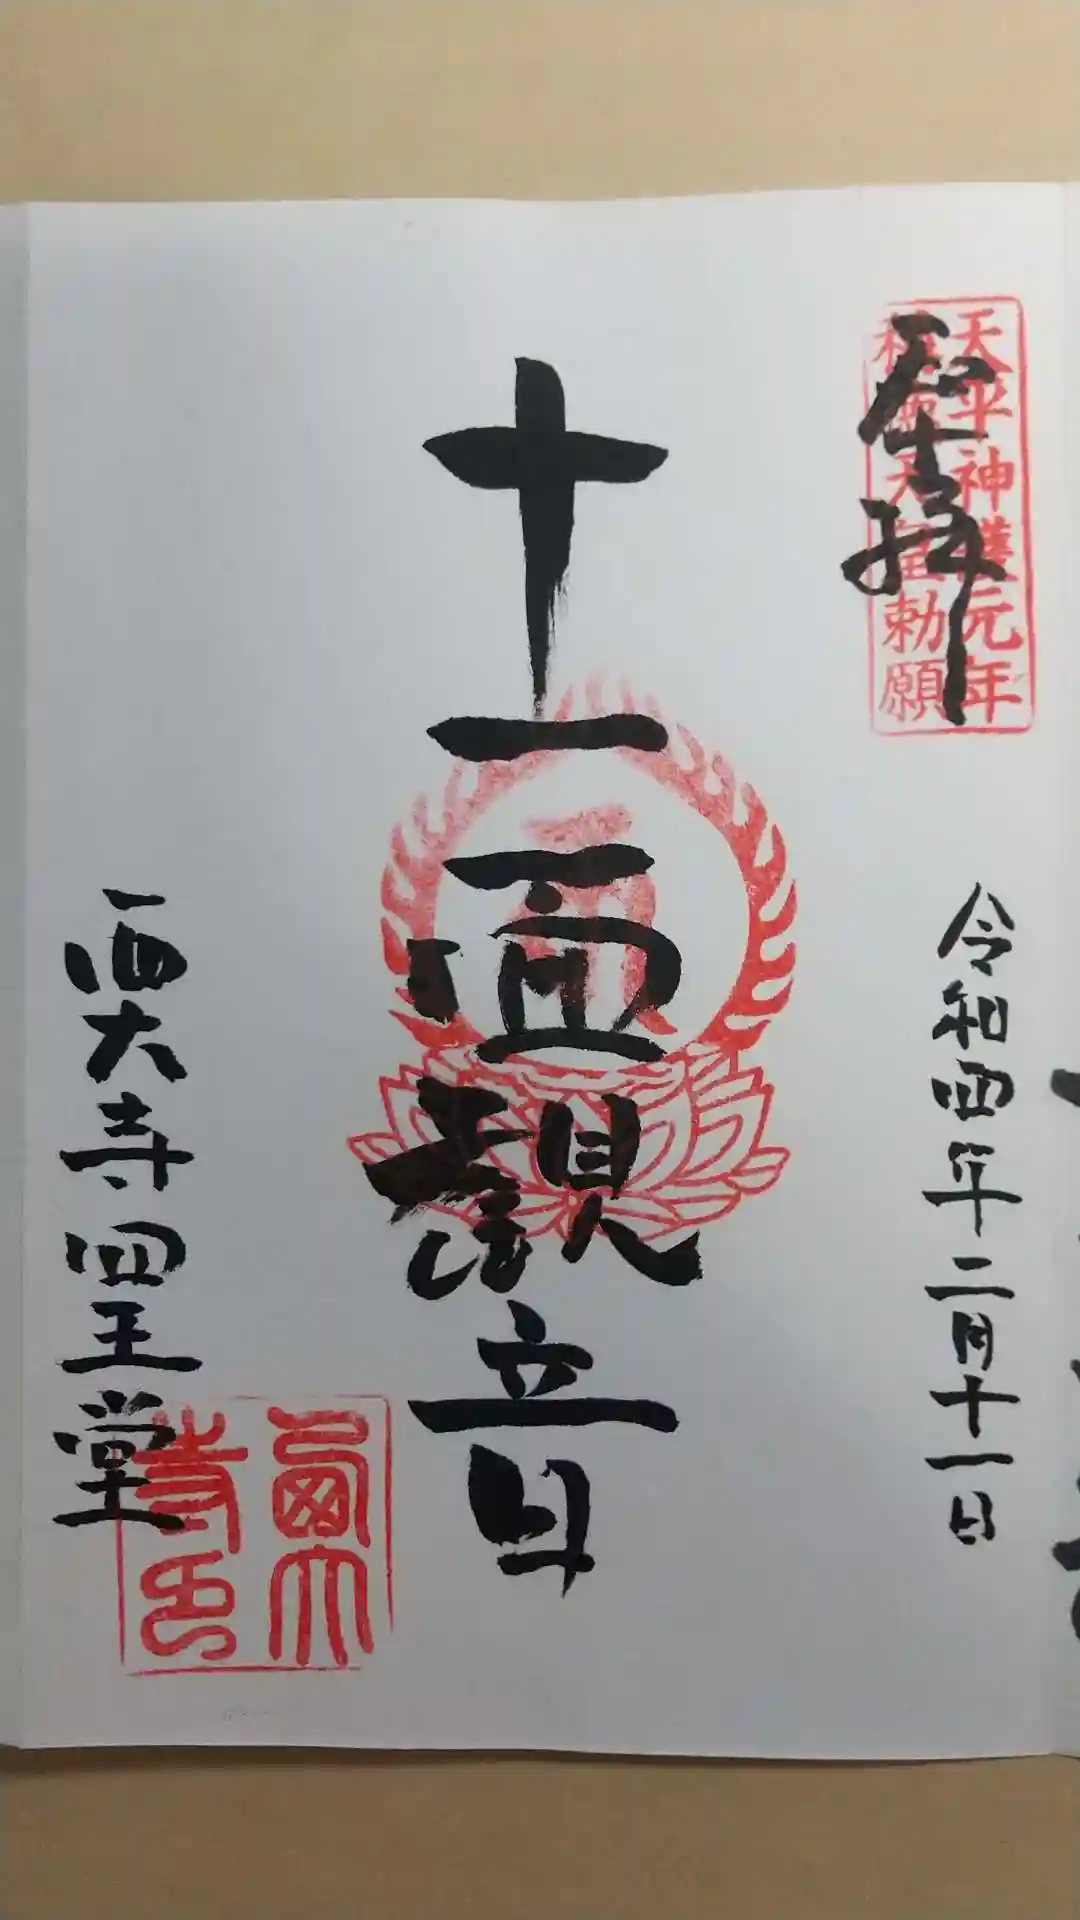 奉拝
天平神護元年
稱徳天皇勅願
令和四年二月十一日
十一面観音
西大寺四王堂
西大
寺印